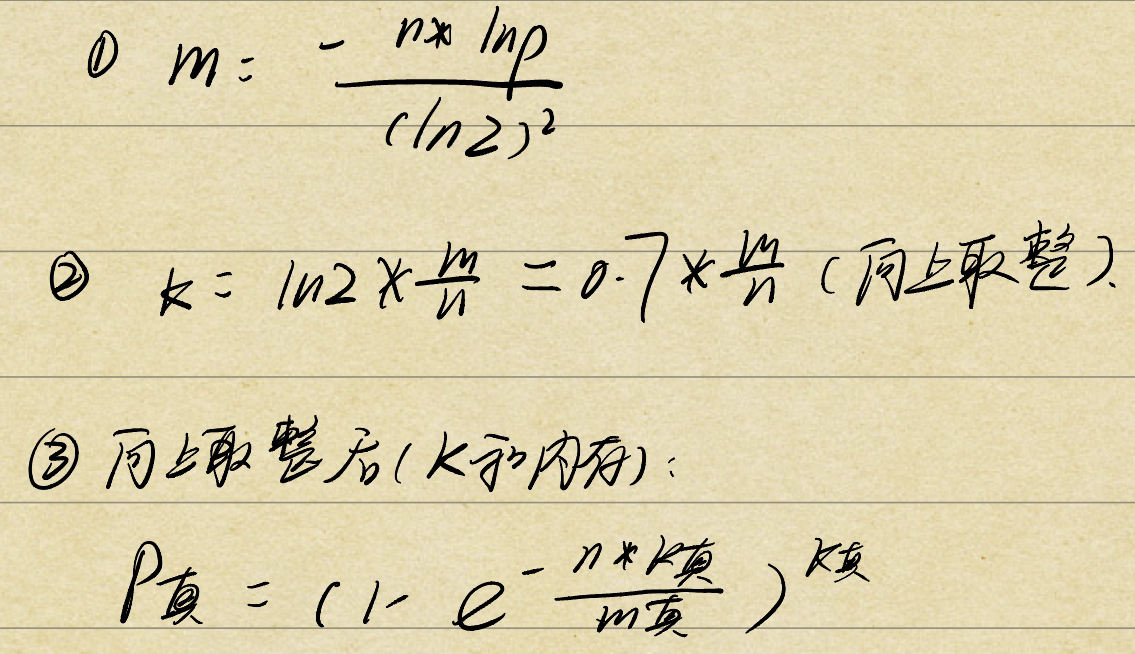 ① m = - n* lnp / (ln2)²
② k = ln2 * m/n = 0.7 * m/n (向上取整).
③ 向上取整后(K和内存):
P真 = (1 - e^(- n * k真 / m真))^k真